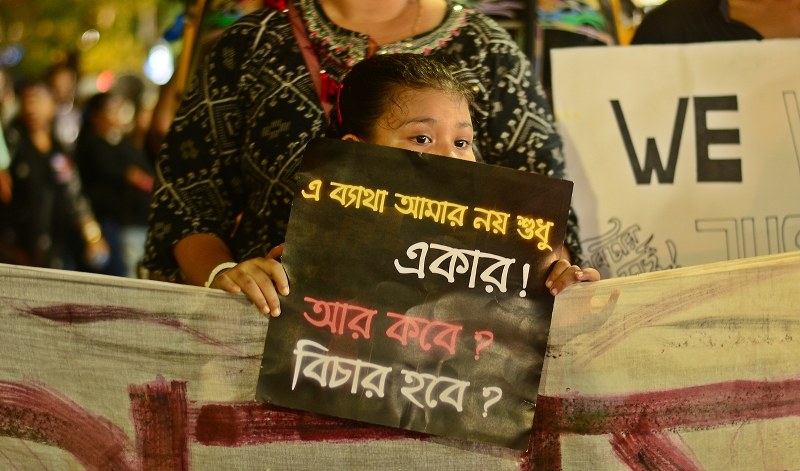 এ ব্যাথা আমার নয় শুধু
একার!
আর কবে?
বিচার হবে?
WE